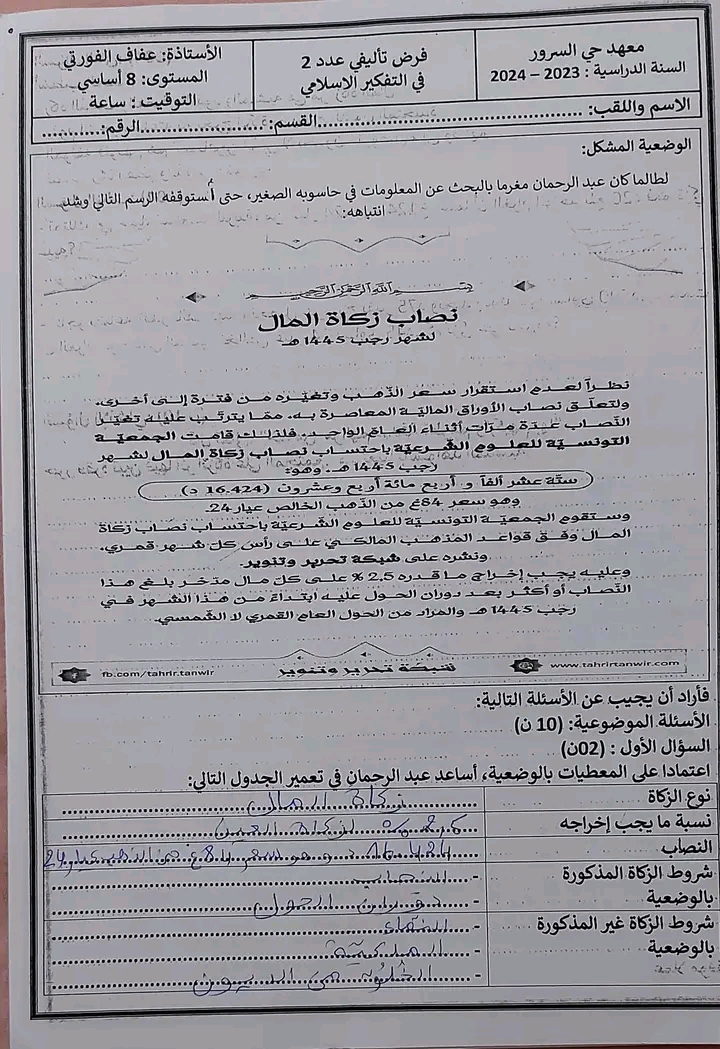 معهد حي السرور
السنة الدراسية : 2023 – 2024
فرض تأليفي عدد 2
في التفكير الإسلامي
الأستاذة: عفاف الفورتي
المستوى: 8 أساسي
التوقيت : ساعة
الاسم واللقب: ........................................القسم:......................الرقم:...........
الوضعية المشكل:
لطالما كان عبد الرحمان مغرما بالبحث عن المعلومات في حاسوبه الصغير، حتى أستوقفه الرسم التالي وشد
انتباهه:
بسم الله الرحمن الرحيم
نصاب زكاة المال
لشهر رجب 1445 هـ
نظراً لعدم استقرار سعر الذّهب وتغيّره من فترة إلى أخرى،
ولتعلّق نصاب الأوراق الماليّة المعاصرة به، ممّا يترتّب عليه تغيّر
النّصاب عدة مرّات أثناء العام الواحد، فلذلك قامت الجمعيّة
التونسيّة للعلوم الشّرعيّة باحتساب نصاب زكاة المال لشهر
رجب 1445 هـ، وهو:
ستّة عشر ألفا و أربع مائة أربع وعشرون (16.424 د)
وهو سعر 84غ من الذّهب الخالص عيار 24.
وستقوم الجمعيّة التونسيّة للعلوم الشّرعيّة باحتساب نصاب زكاة
المال وفق قواعد المذهب المالكي على رأس كلّ شهر قمري،
ونشره على شبكة تحرير وتنوير.
وعليه يجب إخراج ما قدره 2.5 % على كلّ مال مدّخر بلغ هذا
النّصاب أو أكثر بعد دوران الحول عليه ابتداءً من هذا الشّهر في
رجب 1445 هـ والمراد من الحول العام القمري لا الشّمسي.
www.tahrirtanwir.com
شبكة تحرير وتنوير
fb.com/tahrir.tanwir
فأراد أن يجيب عن الأسئلة التالية:
الأسئلة الموضوعية: (10 ن)
السؤال الأول : (02ن)
اعتمادا على المعطيات بالوضعية، أساعد عبد الرحمان في تعمير الجدول التالي:
نوع الزكاة زكاة المال
نسبة ما يجب إخراجه 2.5 % لزكاة العين
النصاب 16.424 د وهو سعر 84غ من الذهب عيار 24
شروط الزكاة المذكورة - النصاب
بالوضعية - دوران الحول
شروط الزكاة غير المذكورة - النماء
بالوضعية - الملكية
- الخلو من الديون